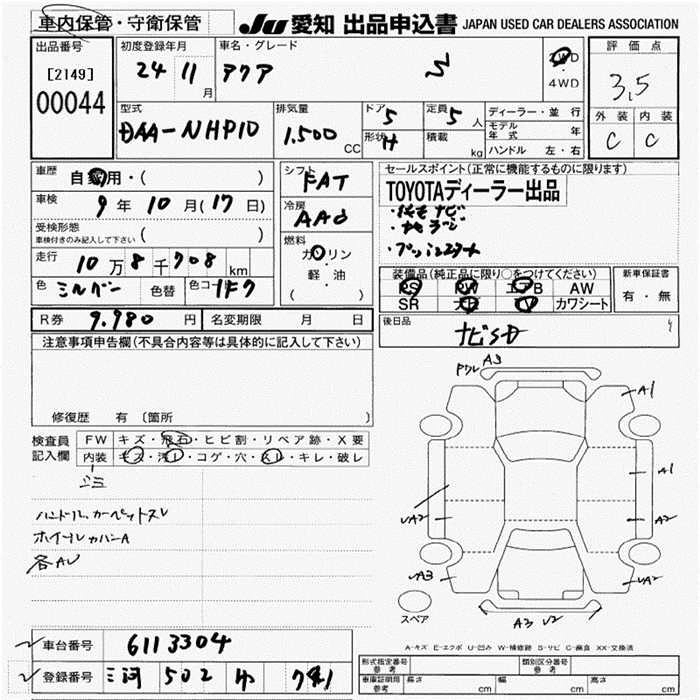 車内保管・守衛保管
JU 愛知 出品申込書 JAPAN USED CAR DEALERS ASSOCIATION
出品番号
[2149]
00044
初度登録年月
24 11 月
車名・グレード
アクア S
2WD
・
4WD
評価点
3.5
外装 内装
C C
型式
DAA-NHP10
排気量
1.500 CC
ドア 5
形状 H
定員 5 人
積載 kg
ディーラー・並行
モデル年式 年
ハンドル 左・右
車歴
自家用・( )
車検
9 年 10 月(17 日)
受検形態
車検付きのみ記入して下さい ( )
走行
10 万 8 千 708 km
色 シルバー 色替 色コード 1F7
シフト
FAT
冷房
AAC
燃料
ガソリン
・
軽・油
( )
セールスポイント(正常に機能するものに限ります)
TOYOTAディーラー出品
・純正ナビ
・プッシュスタート
装備品(純正品に限り○をつけてください)
PS PW エアB AW
SR 大皮 TV カワシート
新車保証書
有・無
後日品
ナビSD
R券 9.980 円 名変期限 月 日
注意事項申告欄(不具合内容等は具体的に記入して下さい)
修復歴 有 〔箇所 〕
検査員
記入欄
FW キズ・飛石・ヒビ割・リペア跡・X要
内装 キズ・汚レ・コゲ・穴・スレ・キレ・破レ
ゴミ
ハンドル、カーペットスレ
ホイールカバーA
各AU
A3
A1
A1
UA2
A2
UA3
UA2
A3 U2
スペア
A-キズ E-エクボ U-凹み W-補修跡 S-サビ C-腐食 XX-交換済
車台番号 6113304
登録番号 三河 502
型式指定番号
参考
類別区分番号
参考
車庫証明用
参考
長さ cm 幅 cm 高さ cm